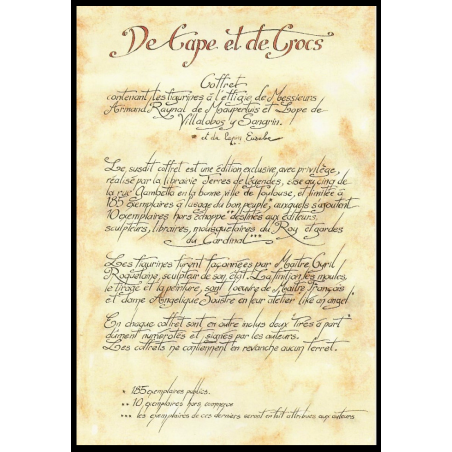 De Cape et de Crocs
Coffret
contenant les figurines à l'effigie de Messieurs
Armand Raynal de Maupertuis et Lope de
Villalobos y Sangrin.
* et du lapin Eusèbe
Le susdit coffret est une édition exclusive, avec privilège,
réalisé par la librairie Terres de légendes, sise au cinq de
la rue Gambetta en la bonne ville de Toulouse, et limitée à
185 exemplaires à l'usage du bon peuple*, auxquels s'ajoutent
10 exemplaires hors échoppe** destinés aux éditeurs,
sculpteurs, libraires, mousquetaires du Roy et gardes
du Cardinal***
Les figurines furent façonnées par Maître Cyril
Roquelaine, sculpteur de son état. La finition, les moules,
le tirage et la peinture, sont l'oeuvre de Maître François
et dame Angélique Soustre en leur atelier like an angel
En chaque coffret sont en outre inclus deux tirés à part
dûment numérotés et signés par les auteurs.
Les coffrets ne contiennent en revanche aucun ferret.
* 185 exemplaires publics.
** 10 exemplaires hors commerce
*** les exemplaires de ces derniers seront en fait attribués aux auteurs